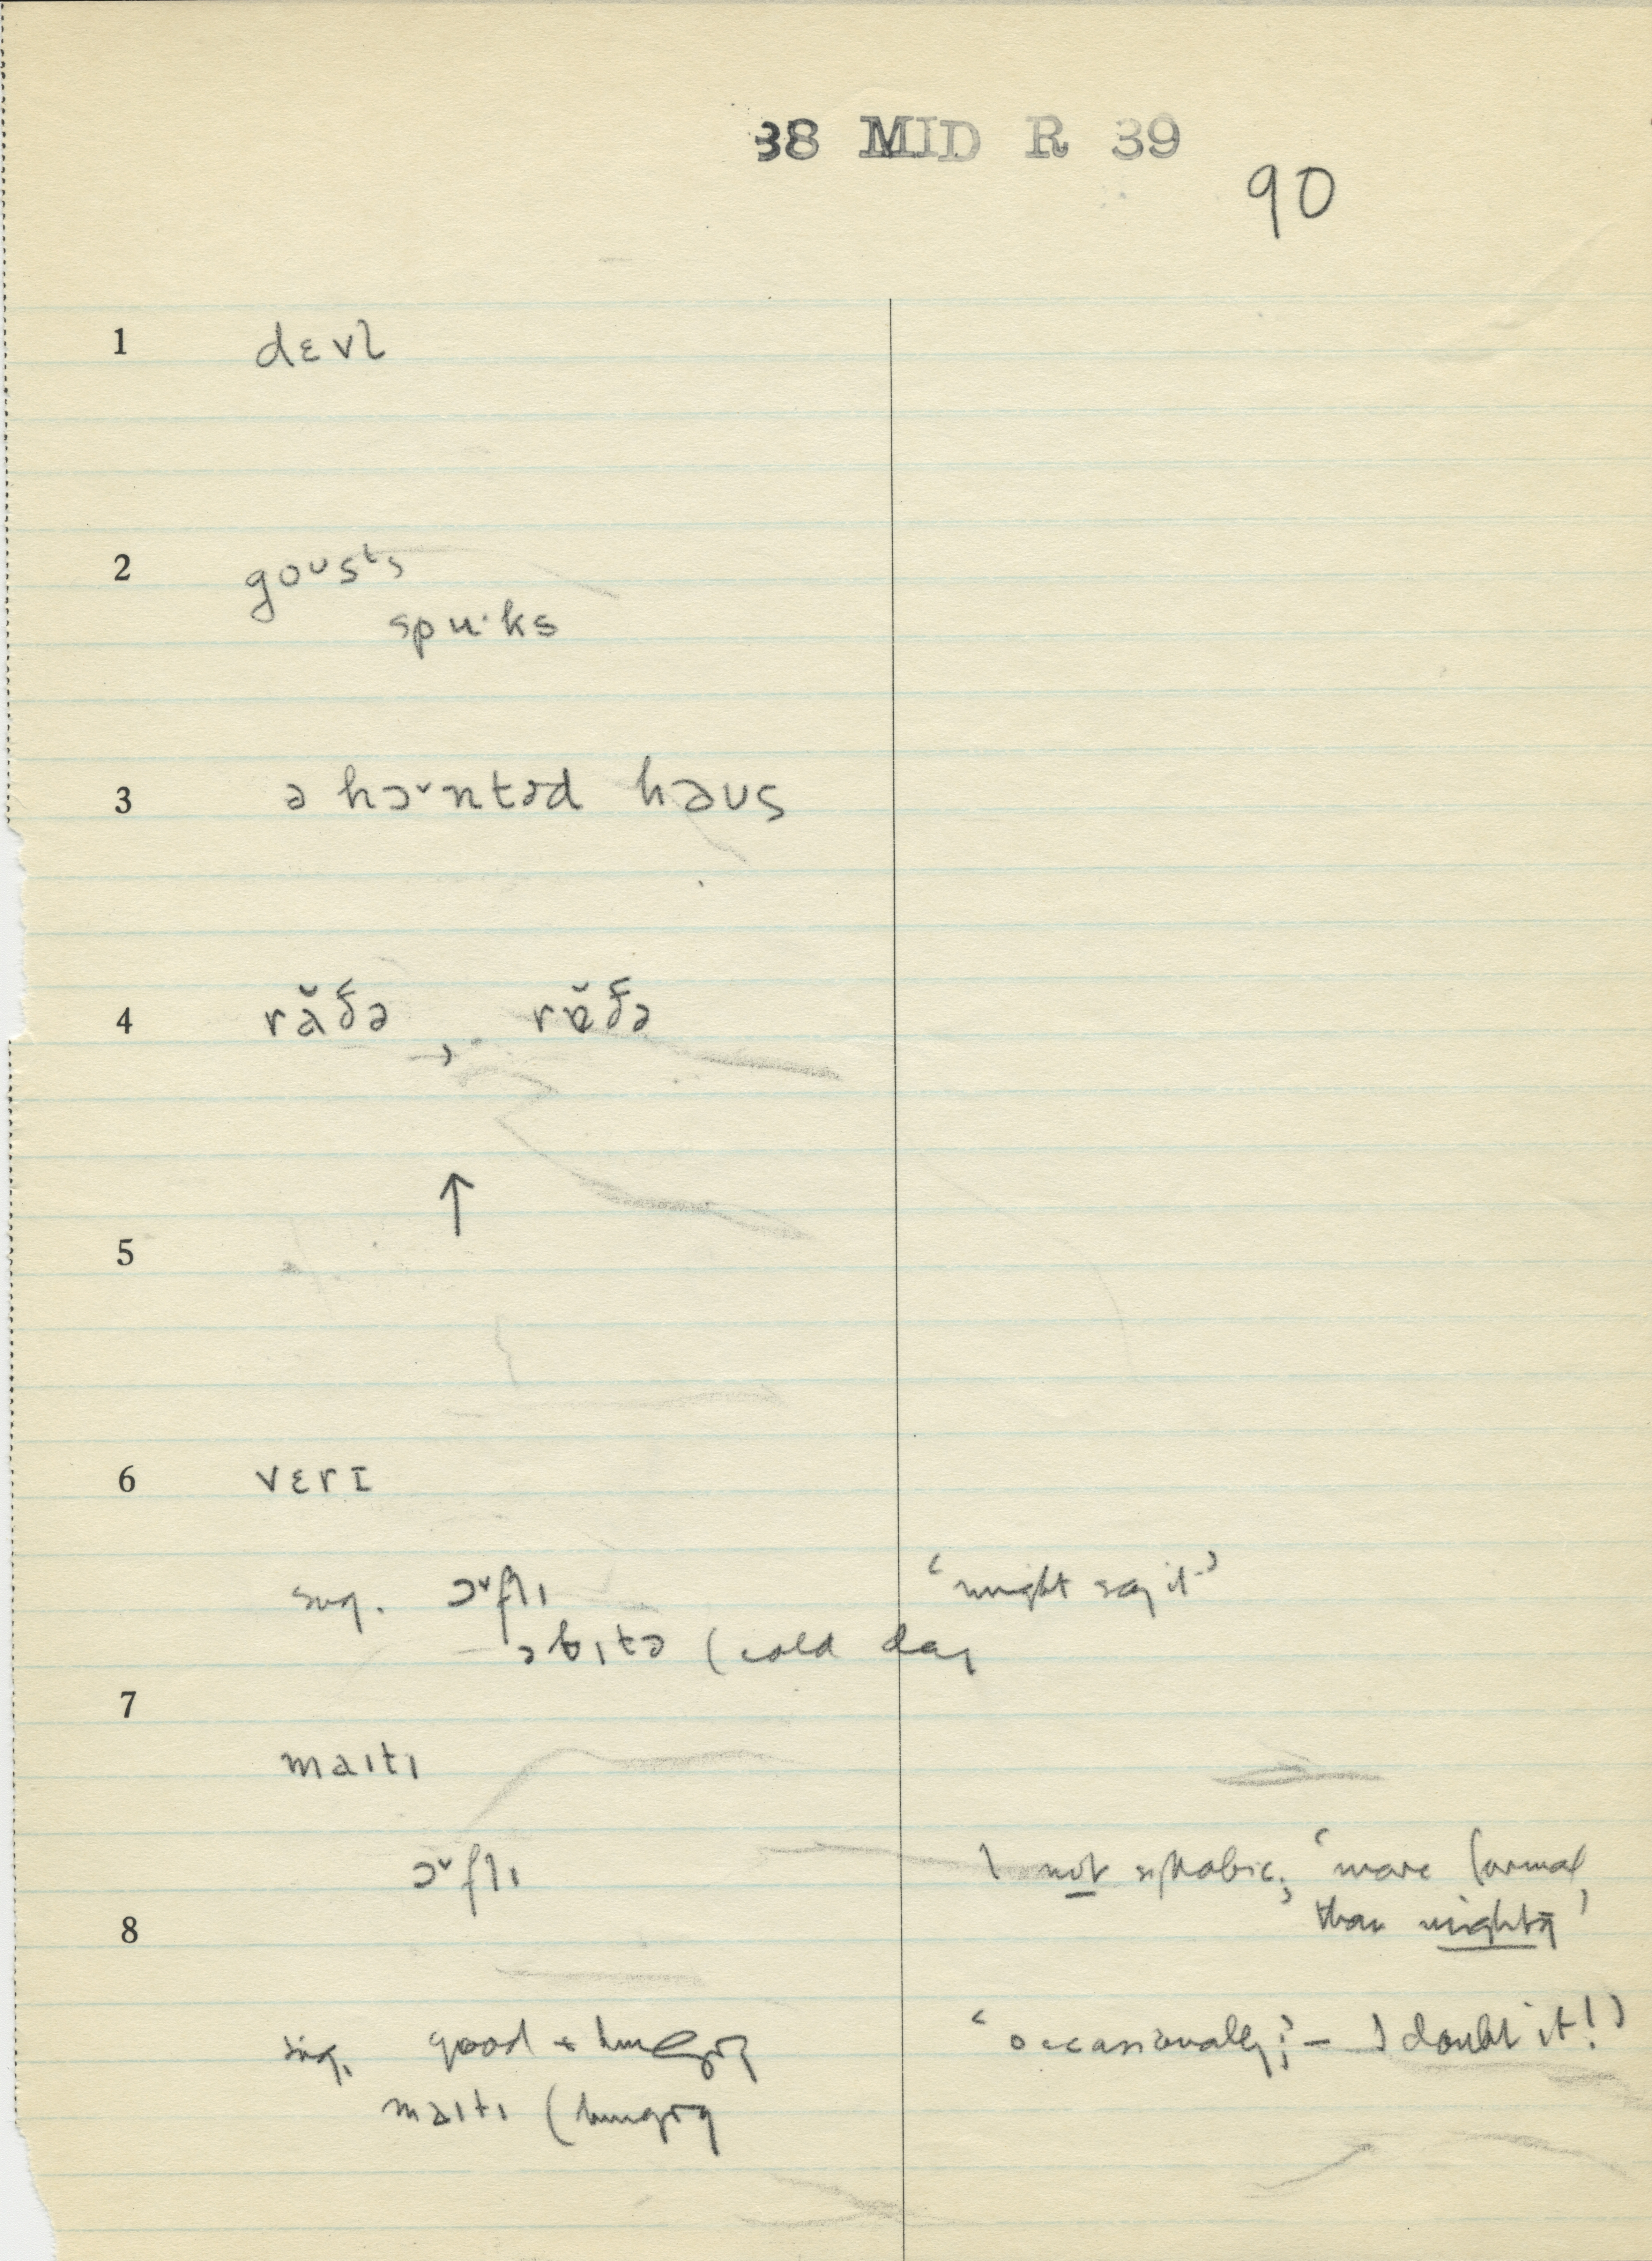 38 MID R 39
90
1 dɛvl
2 goᴜsᵗs
spu·ks
3 ə hɔ˅ntəd həʊs
4 răðə → rɐ̆ðə
↑
5
6 vɛrɪ
sug. ɔ˅flɪ 'might say it'
→ ə bɪtə (cold day
7
maɪtɪ
ɔ˅flɪ l not syllabic; 'more formal
8 than mighty'
sug. good + hungry 'occasionally; – I doubt it!'
maɪtɪ (hungry